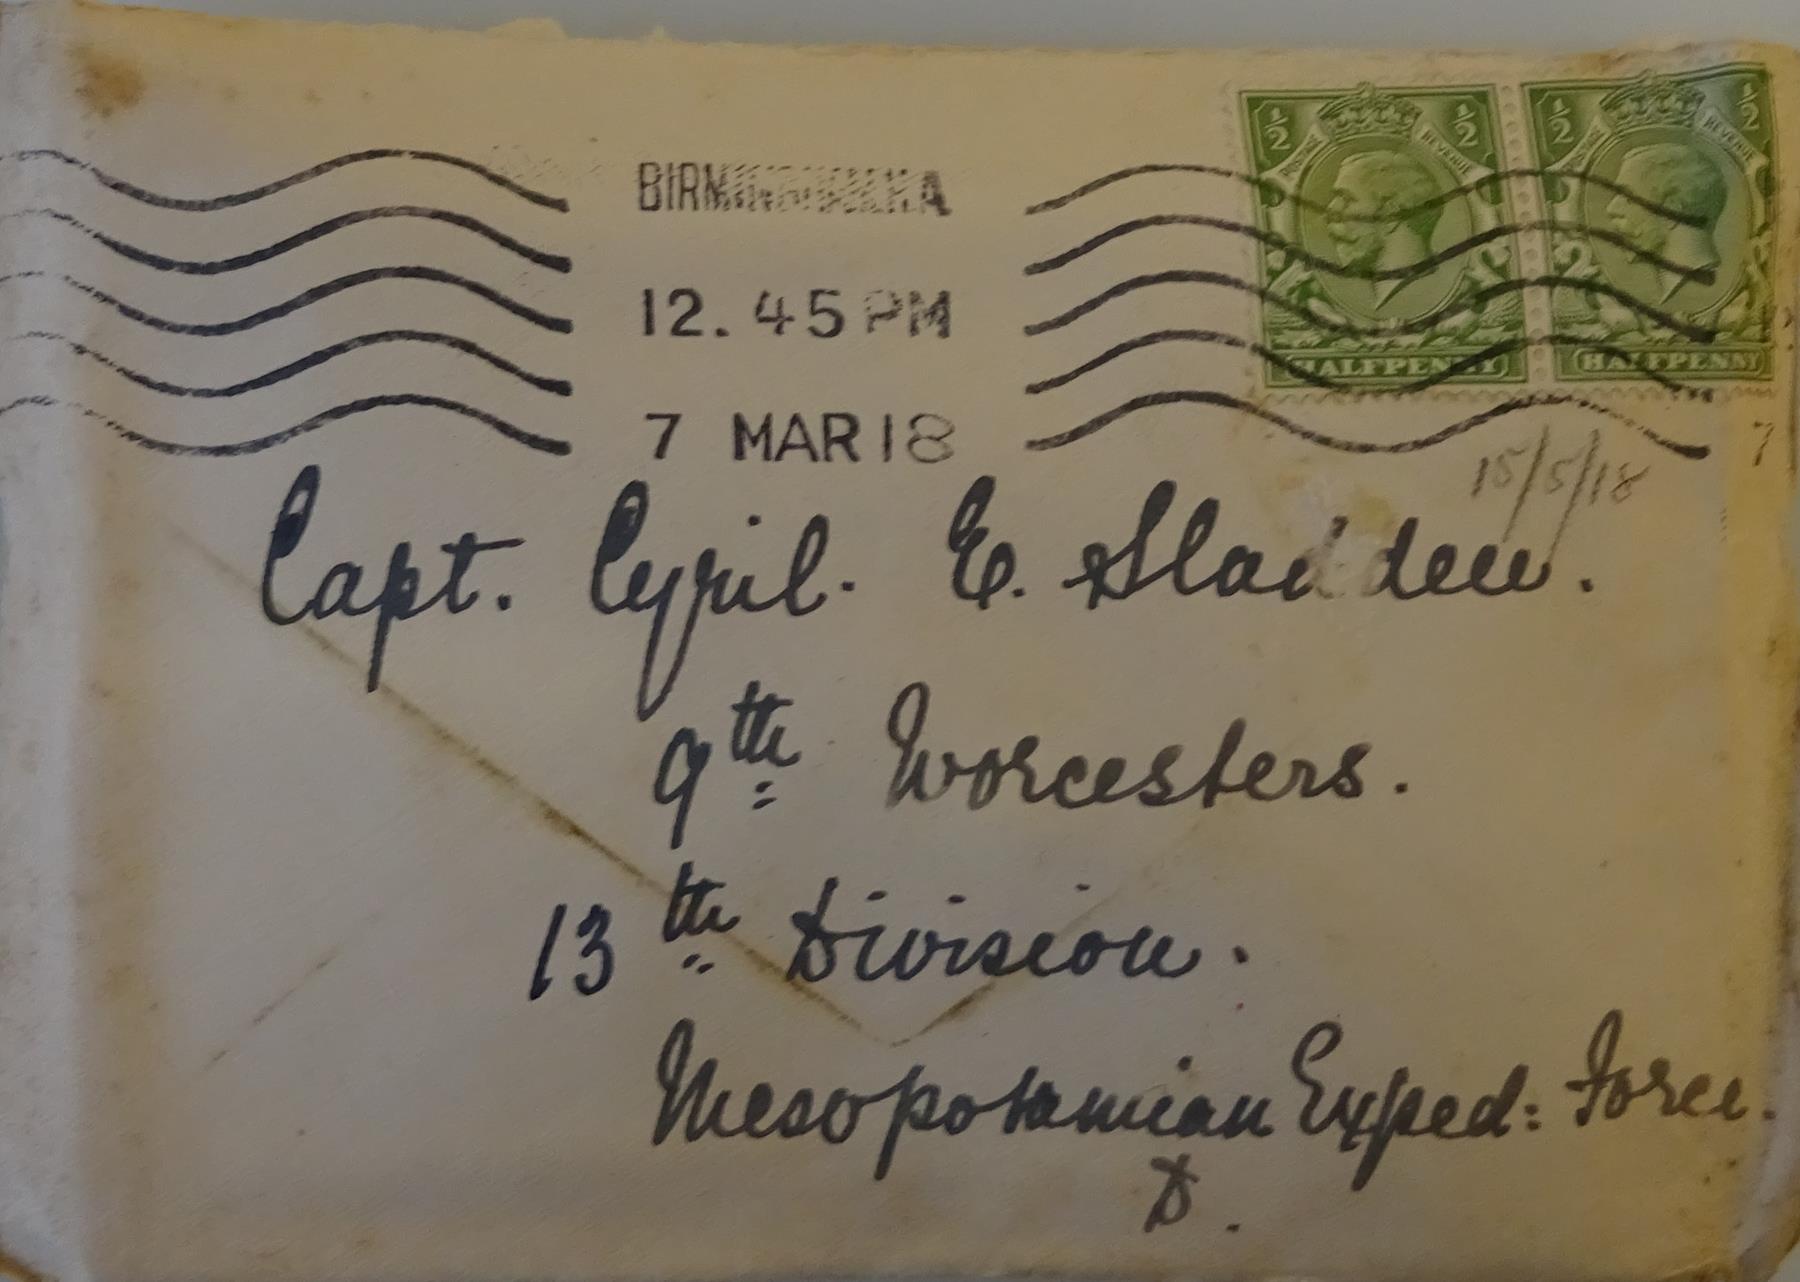 BIRMINGHAM
12. 45 PM
7 MAR 18
½ ½
POSTAGE REVENUE
HALFPENNY
½ ½
POSTAGE REVENUE
HALFPENNY
15/5/18
7
Capt. Cyril. E. Sladden.
9th Worcesters.
13th Division.
Mesopotamian Exped: Force.
D.